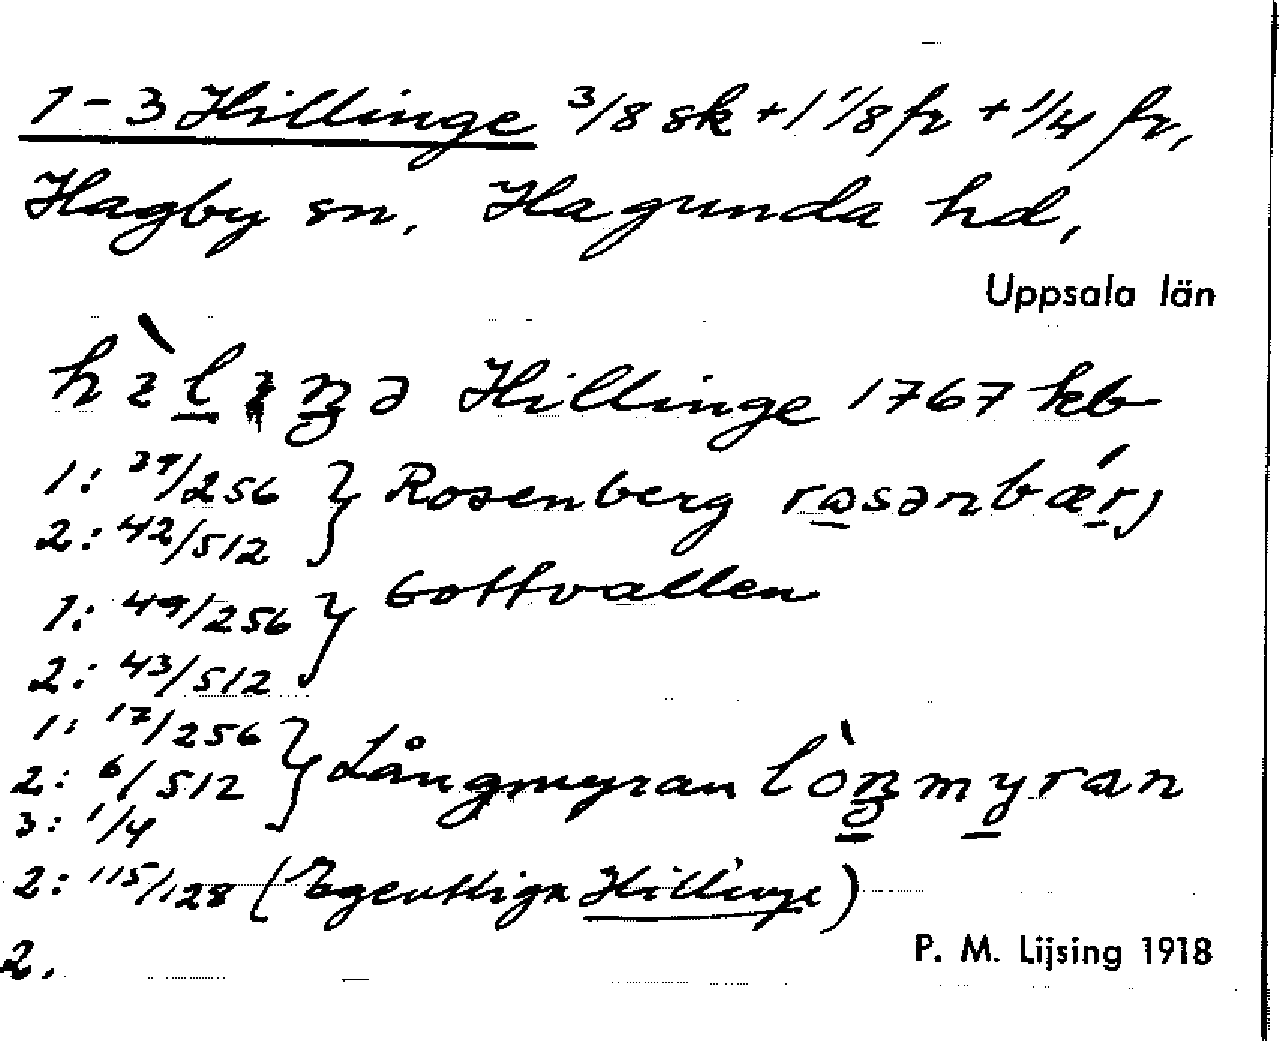 1-3 Hillinge 3/8 sk + 1 1/8 fr + 1/4 fr,
Hagby sn, Hagunda hd,
Uppsala län
Hillinge 1767 kb
1: 37/256 } Rosenberg
2: 42/512
1: 49/256 } Gottvallen
2: 43/512
1: 17/256
2: 6/512 } Långmyran
3: 1/4
2: 115/128 (Egentliga Hillinge)
2.
P. M. Lijsing 1918